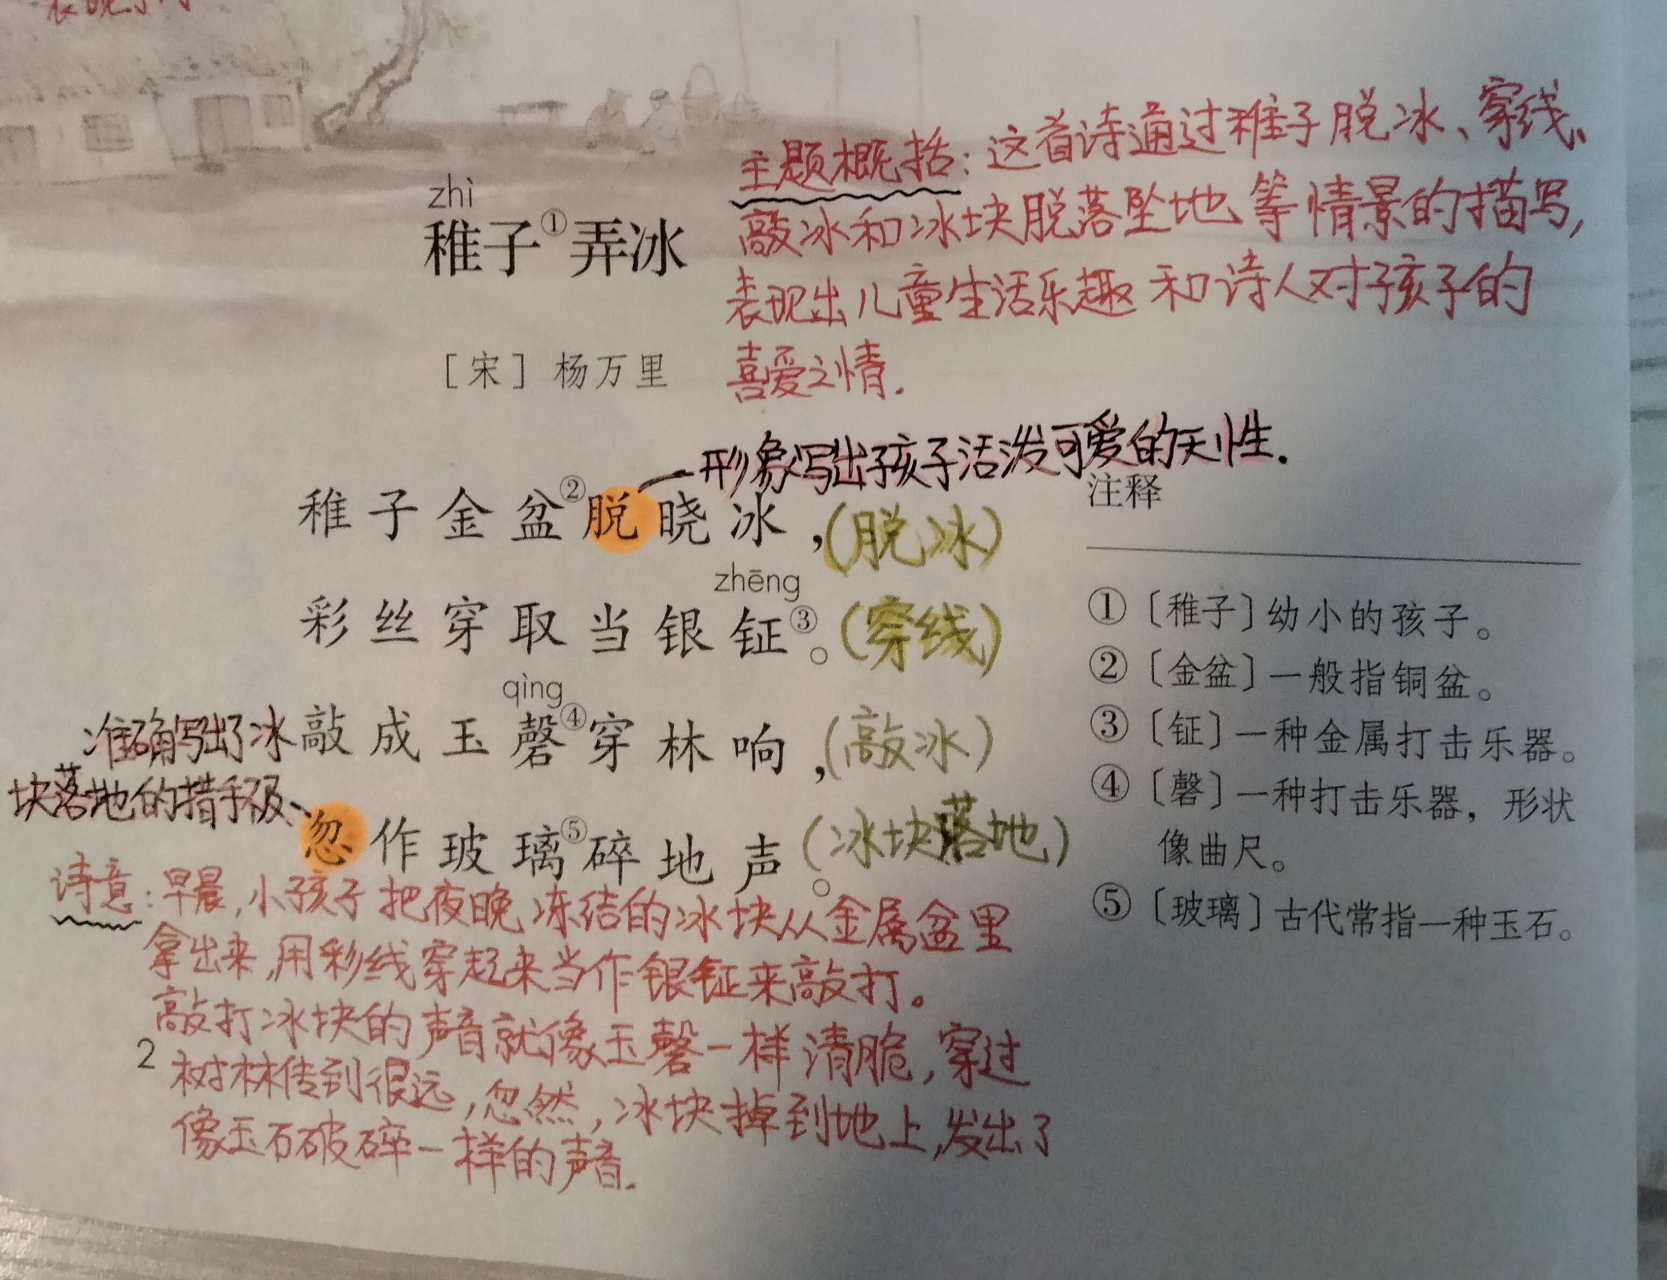 主题概括：这首诗通过稚子脱冰、穿线、
敲冰和冰块脱落坠地等情景的描写，
表现出儿童生活乐趣和诗人对孩子的
喜爱之情.
zhì
稚子①弄冰
［宋］杨万里
形象写出孩子活泼可爱的天性.
稚子金盆②脱晓冰，(脱冰)
zhēng
彩丝穿取当银钲③。(穿线)
qìng
敲成玉磬④穿林响，(敲冰)
忽作玻璃⑤碎地声。(冰块落地)
准确写出了冰
块落地的措手不及
诗意：早晨，小孩子把夜晚冻结的冰块从金属盆里
拿出来，用彩线穿起来当作银钲来敲打。
敲打冰块的声音就像玉磬一样清脆，穿过
树林传到很远，忽然，冰块掉到地上，发出了
像玉石破碎一样的声音.
2
注释
①〔稚子〕幼小的孩子。
②〔金盆〕一般指铜盆。
③〔钲〕一种金属打击乐器。
④〔磬〕一种打击乐器，形状
像曲尺。
⑤〔玻璃〕古代常指一种玉石。